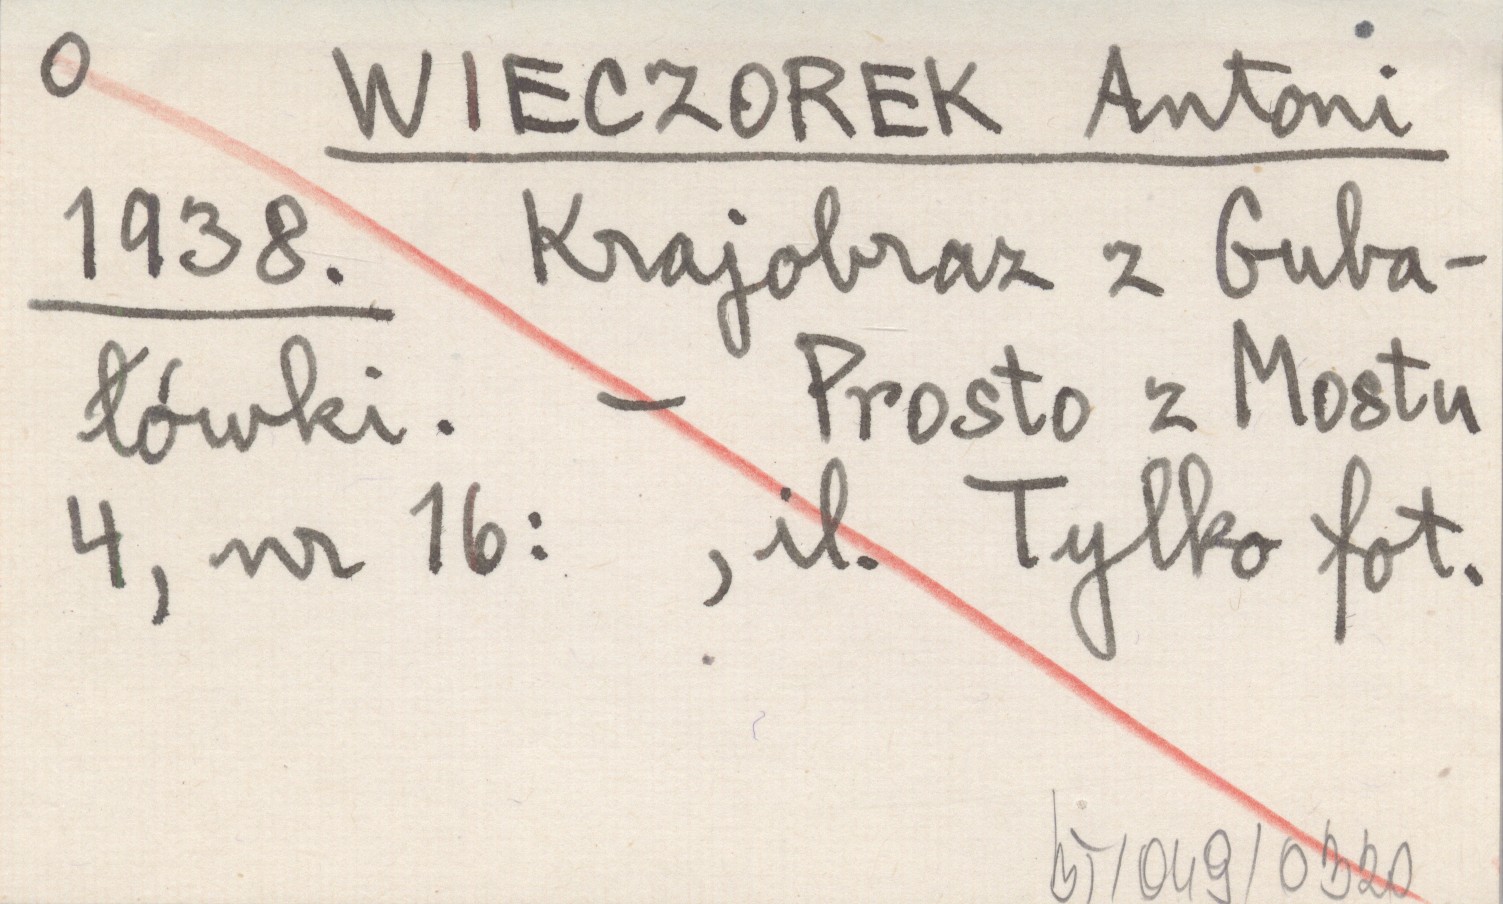 O WIECZOREK Antoni
1938. Krajobraz z Guba-
łówki. – Prosto z Mostu
4, nr 16: , il. Tylko fot.
/049/0320